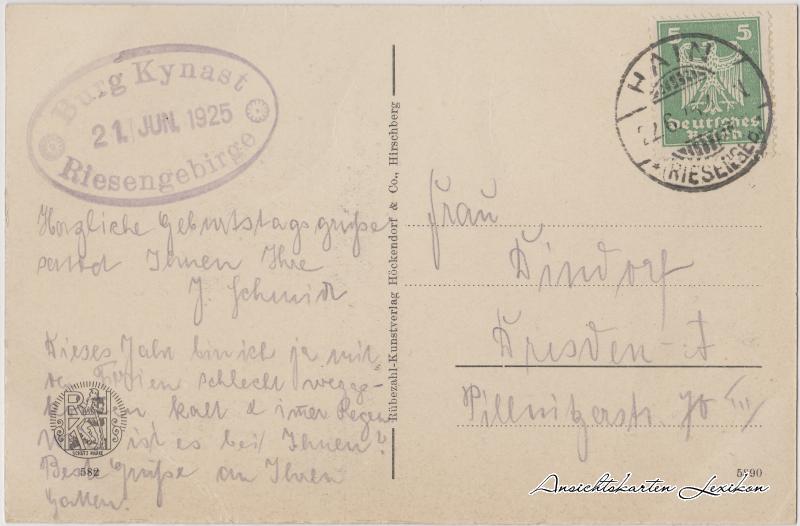 Burg Kynast
21. JUN. 1925
Riesengebirge
Herzliche Geburtstagsgrüße
send Ihnen Ihre
J. Schmidt
Dieses Jahr bin ich ja mit
Ferien schlecht wegge-
kalt & immer Regen
ist es bei Ihnen?
Beste Grüße an Ihren
Gatten.
RKV
SCHUTZ MARKE
582
Rübezahl-Kunstverlag Höckendorf & Co., Hirschberg
5 5
Deutsches
Reich
HAIN
22.6.
(RIESENGEB)
Frau
Dindorf
Dresden-A
Pillnitzerstr. 70 III
5890
Ansichtskarten Lexikon